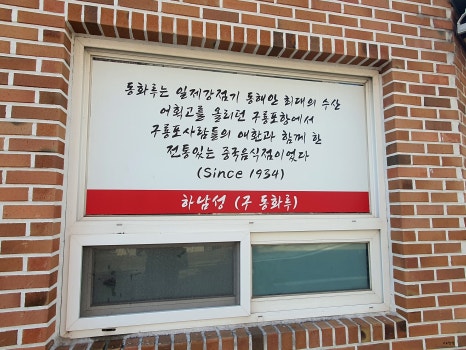 동화루는 일제강점기 동해안 최대의 수산
어획고를 올리던 구룡포항에서
구룡포사람들의 애환과 함께 한
전통있는 중국음식점이었다
(Since 1934)
하남성 (구 동화루)